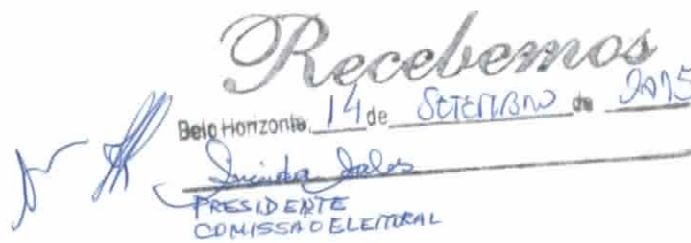 Recebemos
Belo Horizonte, 14 de SETEMBRO de 2015
PRESIDENTE
COMISSAO ELEITORAL